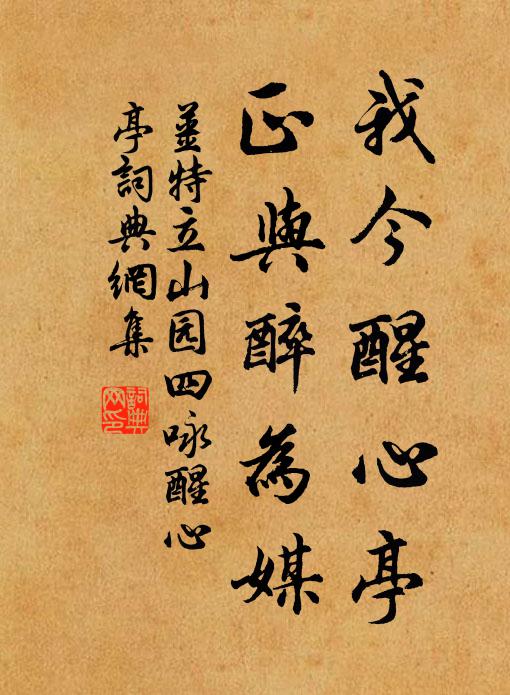 我今醒心亭
正與醉為媒
薑特立山园四咏醒心
亭詞典網集
詞典网印